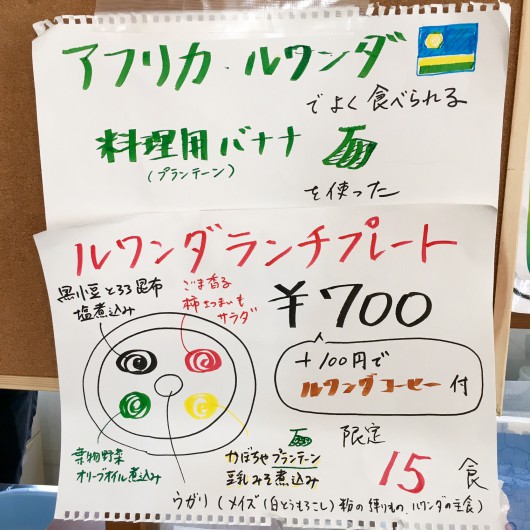 アフリカ・ルワンダ
でよく食べられる
料理用バナナ
(プランテーン)
を使った
ルワンダランチプレート
黒小豆ととろろ昆布
塩煮込み
ごま香る
柿とさつまいも
サラダ
¥700
+100円で
ルワンダコーヒー付
葉物野菜
オリーブオイル煮込み
かぼちゃプランテーン
豆乳みそ煮込み
限定
15食
ウガリ(メイズ(白とうもろこし)粉の練りもの、ルワンダの主食)